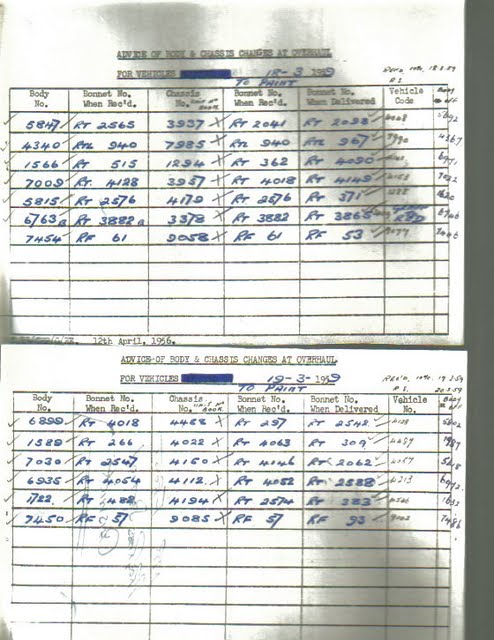 ADVICE OF BODY & CHASSIS CHANGES AT OVERHAUL
FOR VEHICLES 18-3 1959 REC'D. 18.3.59
TO PAINT
Body No. Bonnet No. When Rec'd. Chassis No. Bonnet No. When Rec'd. Bonnet No. When Delivered Vehicle Code Body off
5847 RT 2565 3937 X RT 2041 RT 2098
4340 RTL 940 7985 X RTL 940 RTL 967 4367
1566 RT 515 1294 X RT 362 RT 4090
7009 RT 4128 3957 X RT 4018 RT 4149
5815 RT 2576 4179 X RT 2576 RT 371
6763a RT 3882a 3378 X RT 3882 RT 3865 6746
7454 RF 61 9058 X RF 61 RF 53 9077
12th April, 1956.
ADVICE OF BODY & CHASSIS CHANGES AT OVERHAUL
FOR VEHICLES 19-3- 1959 REC'D. 19.3.59
TO PAINT
Body No. Bonnet No. When Rec'd. Chassis No. Bonnet No. When Rec'd. Bonnet No. When Delivered Vehicle No. Body off
6899 RT 4018 4488 X RT 297 RT 2542 4128
1589 RT 266 4022 X RT 4063 RT 309
7030 RT 2547 4160 X RT 4146 RT 2062
6935 RT 4054 4112 X RT 4052 RT 2588 4213
1722 RT 488 4194 X RT 2574 RT 383
7450 RF 57 9085 X RF 57 RF 93 7486